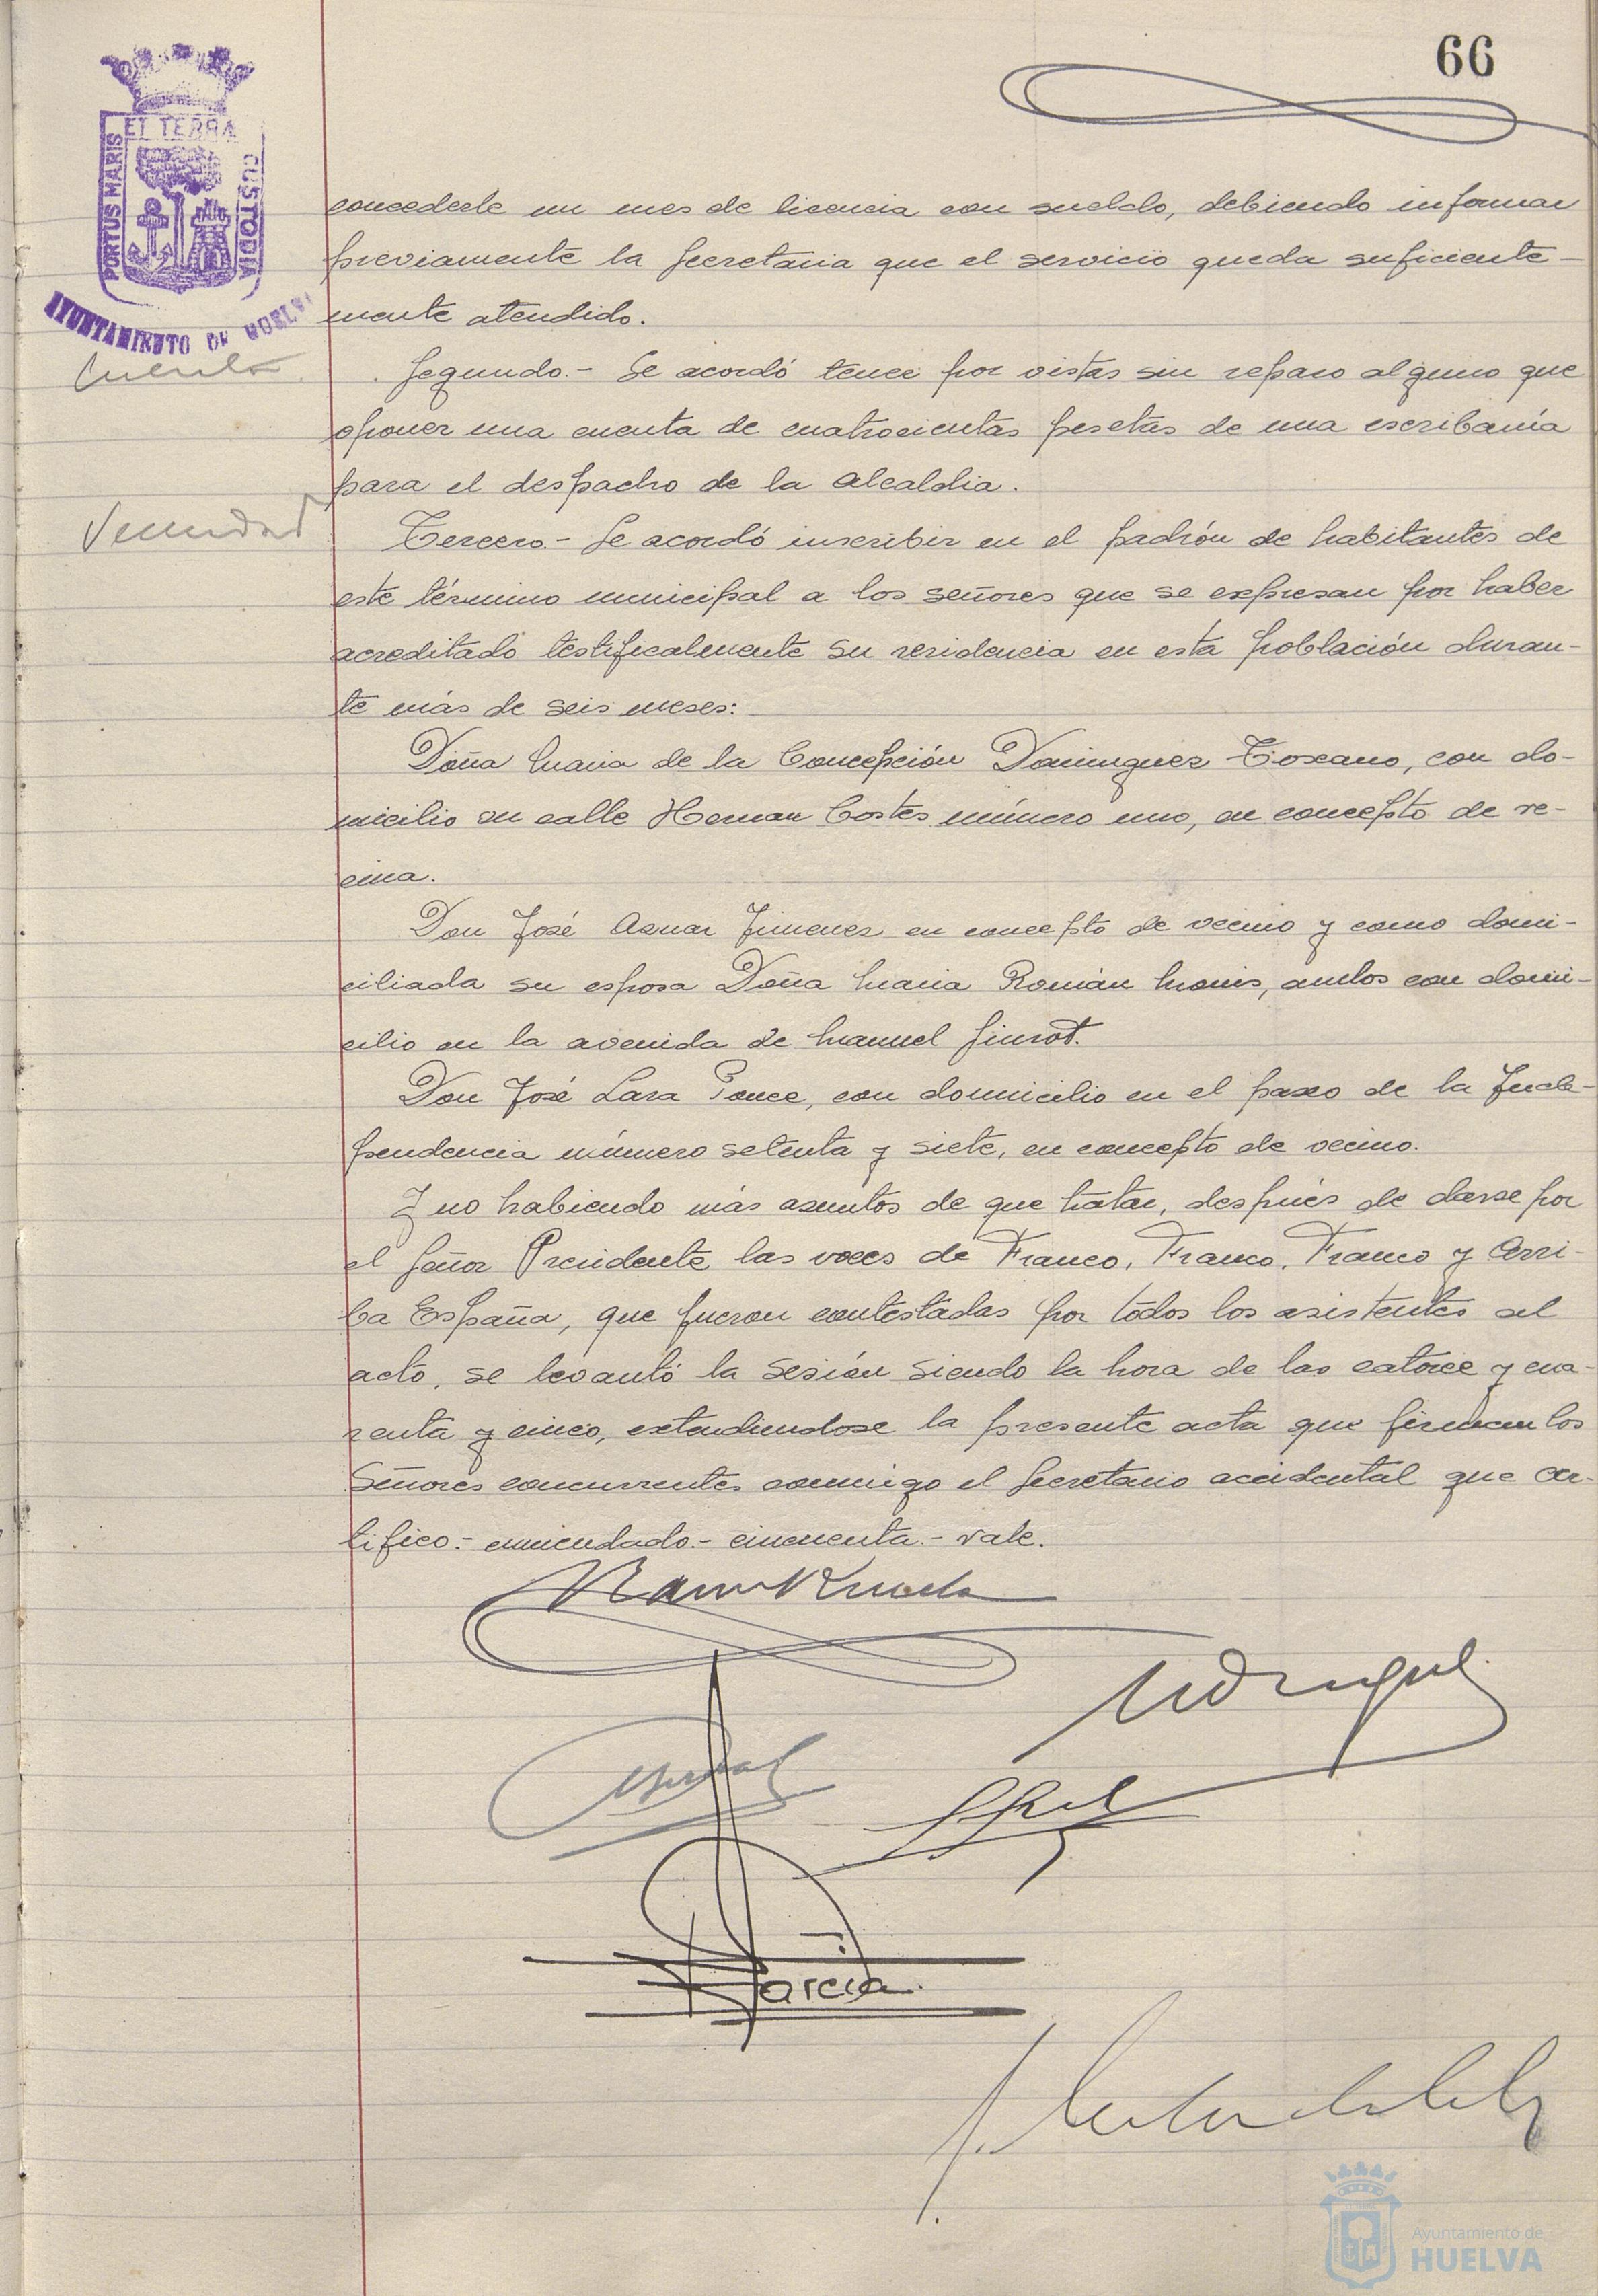 66
ET TERRA
PORTUS MARIS
CUSTODIA
AYUNTAMIENTO DE HUELVA
concederle un mes de licencia con sueldo, debiendo informar
previamente la Secretaria que el servicio queda suficiente-
mente atendido.
Cuenta
Segundo.- Se acordó tener por vistas sin reparo alguno que
oponer una cuenta de cuatrocientas pesetas de una escribanía
para el despacho de la Alcaldia.
Vecindad
Tercero.- Se acordó inscribir en el padrón de habitantes de
este término municipal a los señores que se expresan por haber
acreditado testificalmente su residencia en esta población duran-
te más de seis meses:
Doña Maria de la Concepción Dominguez Toscano, con do-
micilio en calle Hernan Cortes número uno, en concepto de ve-
cina.
Don José Aznar Jimenez en concepto de vecino y como domi-
ciliada su esposa Doña Maria Román, ambos con domi-
cilio en la avenida de Manuel Siurot.
Don José Lara Ponce, con domicilio en el paseo de la Inde-
pendencia número setenta y siete, en concepto de vecino.
Y no habiendo más asuntos de que tratar, después de darse por
el Señor Presidente las voces de Franco, Franco, Franco y Arri-
ba España, que fueron contestadas por todos los asistentes al
acto, se levantó la sesión siendo la hora de las catorce y cua-
renta y cinco, extendiendose la presente acta que firman los
Señores concurrentes conmigo el Secretario accidental que cer-
tifico.- enmendado.- cincuenta.- vale.
Garcia
Ayuntamiento de
HUELVA